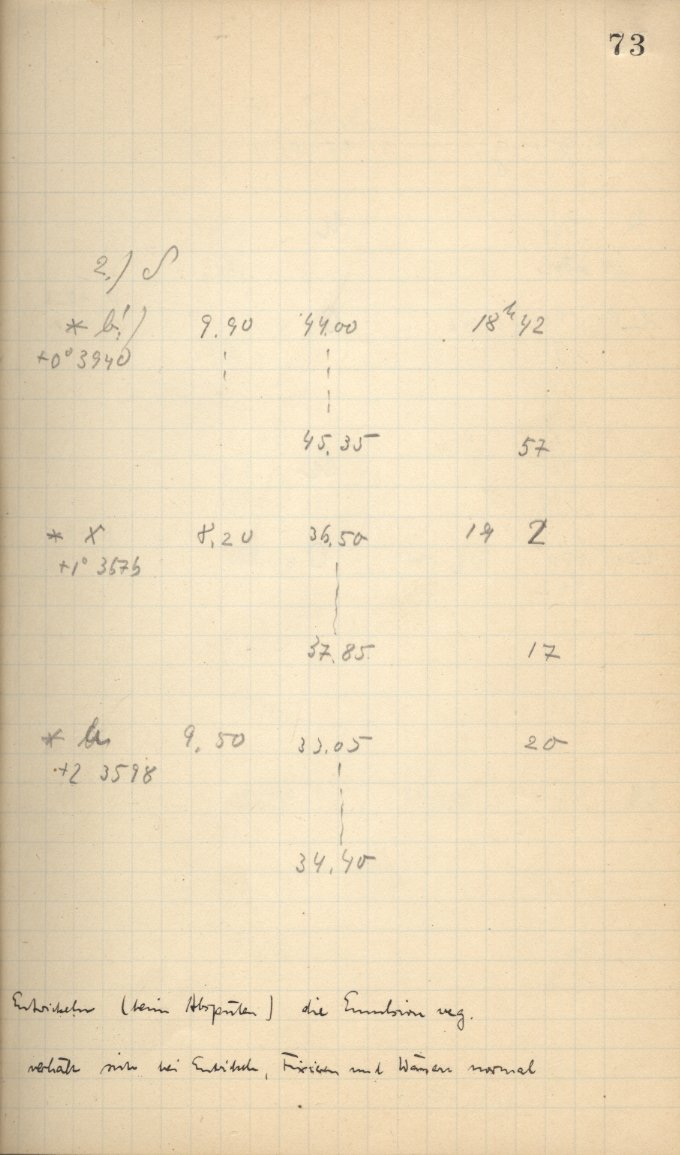 73
2.)
* b!) 9.90 44.00 18h 42
+0° 3940
45.35 57
* X 8.20 36.50 19 2
+1° 3676
37.85 17
* 9.50 33.05 20
+2 3598
34.40
Entwickeln (beim Abspülen) die Emulsion weg.
verhält sich bei Entwickeln, Fixieren und Wässern normal